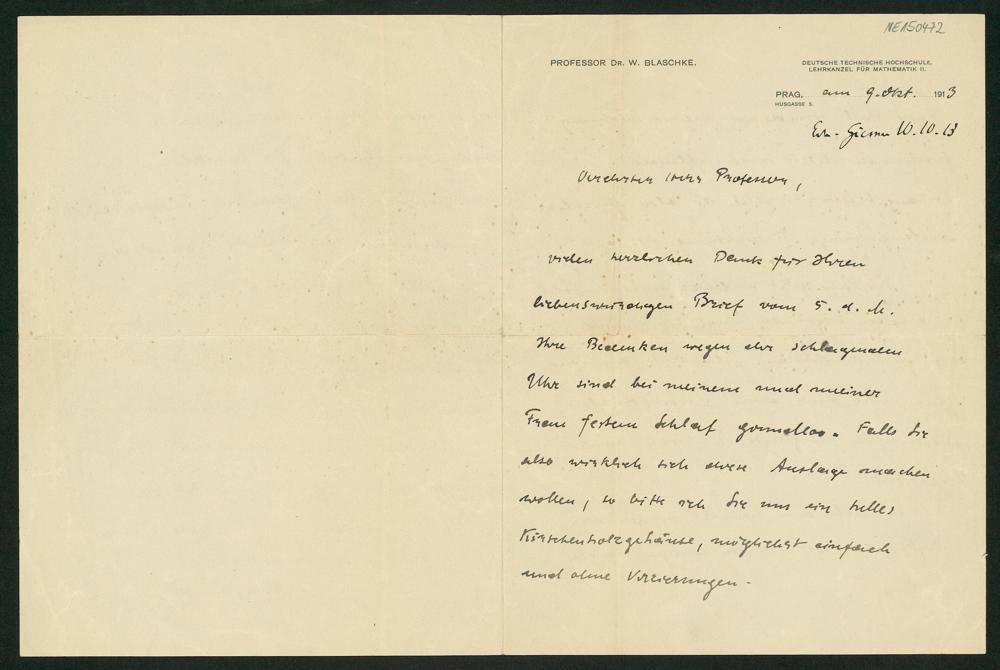 NE150472
PROFESSOR DR. W. BLASCHKE.
DEUTSCHE TECHNISCHE HOCHSCHULE.
LEHRKANZEL FÜR MATHEMATIK II.
PRAG, am 9. Okt. 1913
HUSGASSE 5.
10.10.13
Verehrter Herr Professor,
vielen herzlichen Dank für Ihren
liebenswürdigen Brief vom 5. d. M.
Ihre Bedenken wegen der schlagenden
Uhr sind bei meinem und meiner
Frau festem Schlaf grundlos. Falls Sie
also wirklich sich diese Auslage machen
wollen, so bitte ich Sie um ein helles
Kirschenholzgehäuse, möglichst einfach
und ohne Verzierungen.